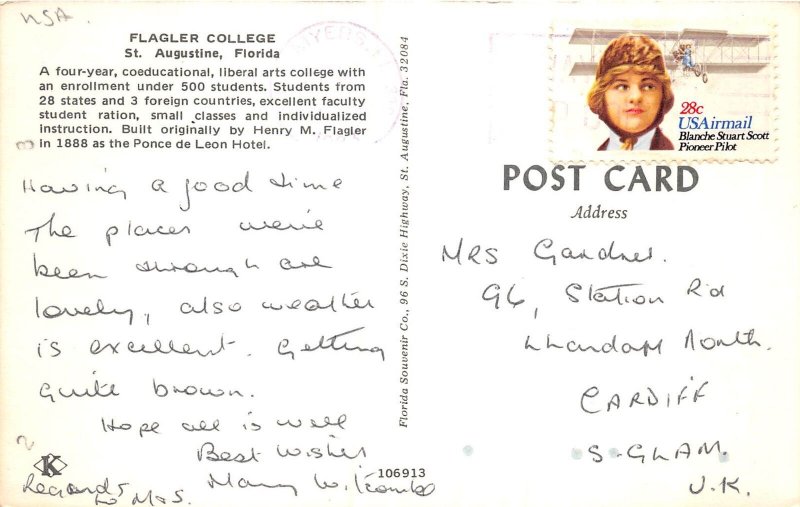 USA
FLAGLER COLLEGE
St. Augustine, Florida
A four-year, coeducational, liberal arts college with
an enrollment under 500 students. Students from
28 states and 3 foreign countries, excellent faculty
student ration, small classes and individualized
instruction. Built originally by Henry M. Flagler
in 1888 as the Ponce de Leon Hotel.
Having a good time
The places we've
been through are
lovely, also weather
is excellent. Getting
quite brown.
Hope all is well
Best Wishes
Mary
Regards
to Mrs S.
K
106913
Florida Souvenir Co., 96 S. Dixie Highway, St. Augustine, Fla. 32084
28c
USAirmail
Blanche Stuart Scott
Pioneer Pilot
POST CARD
Address
MRS Gardner.
96, Station Rd
Llandaff North.
CARDIFF
S. GLAM.
U.K.